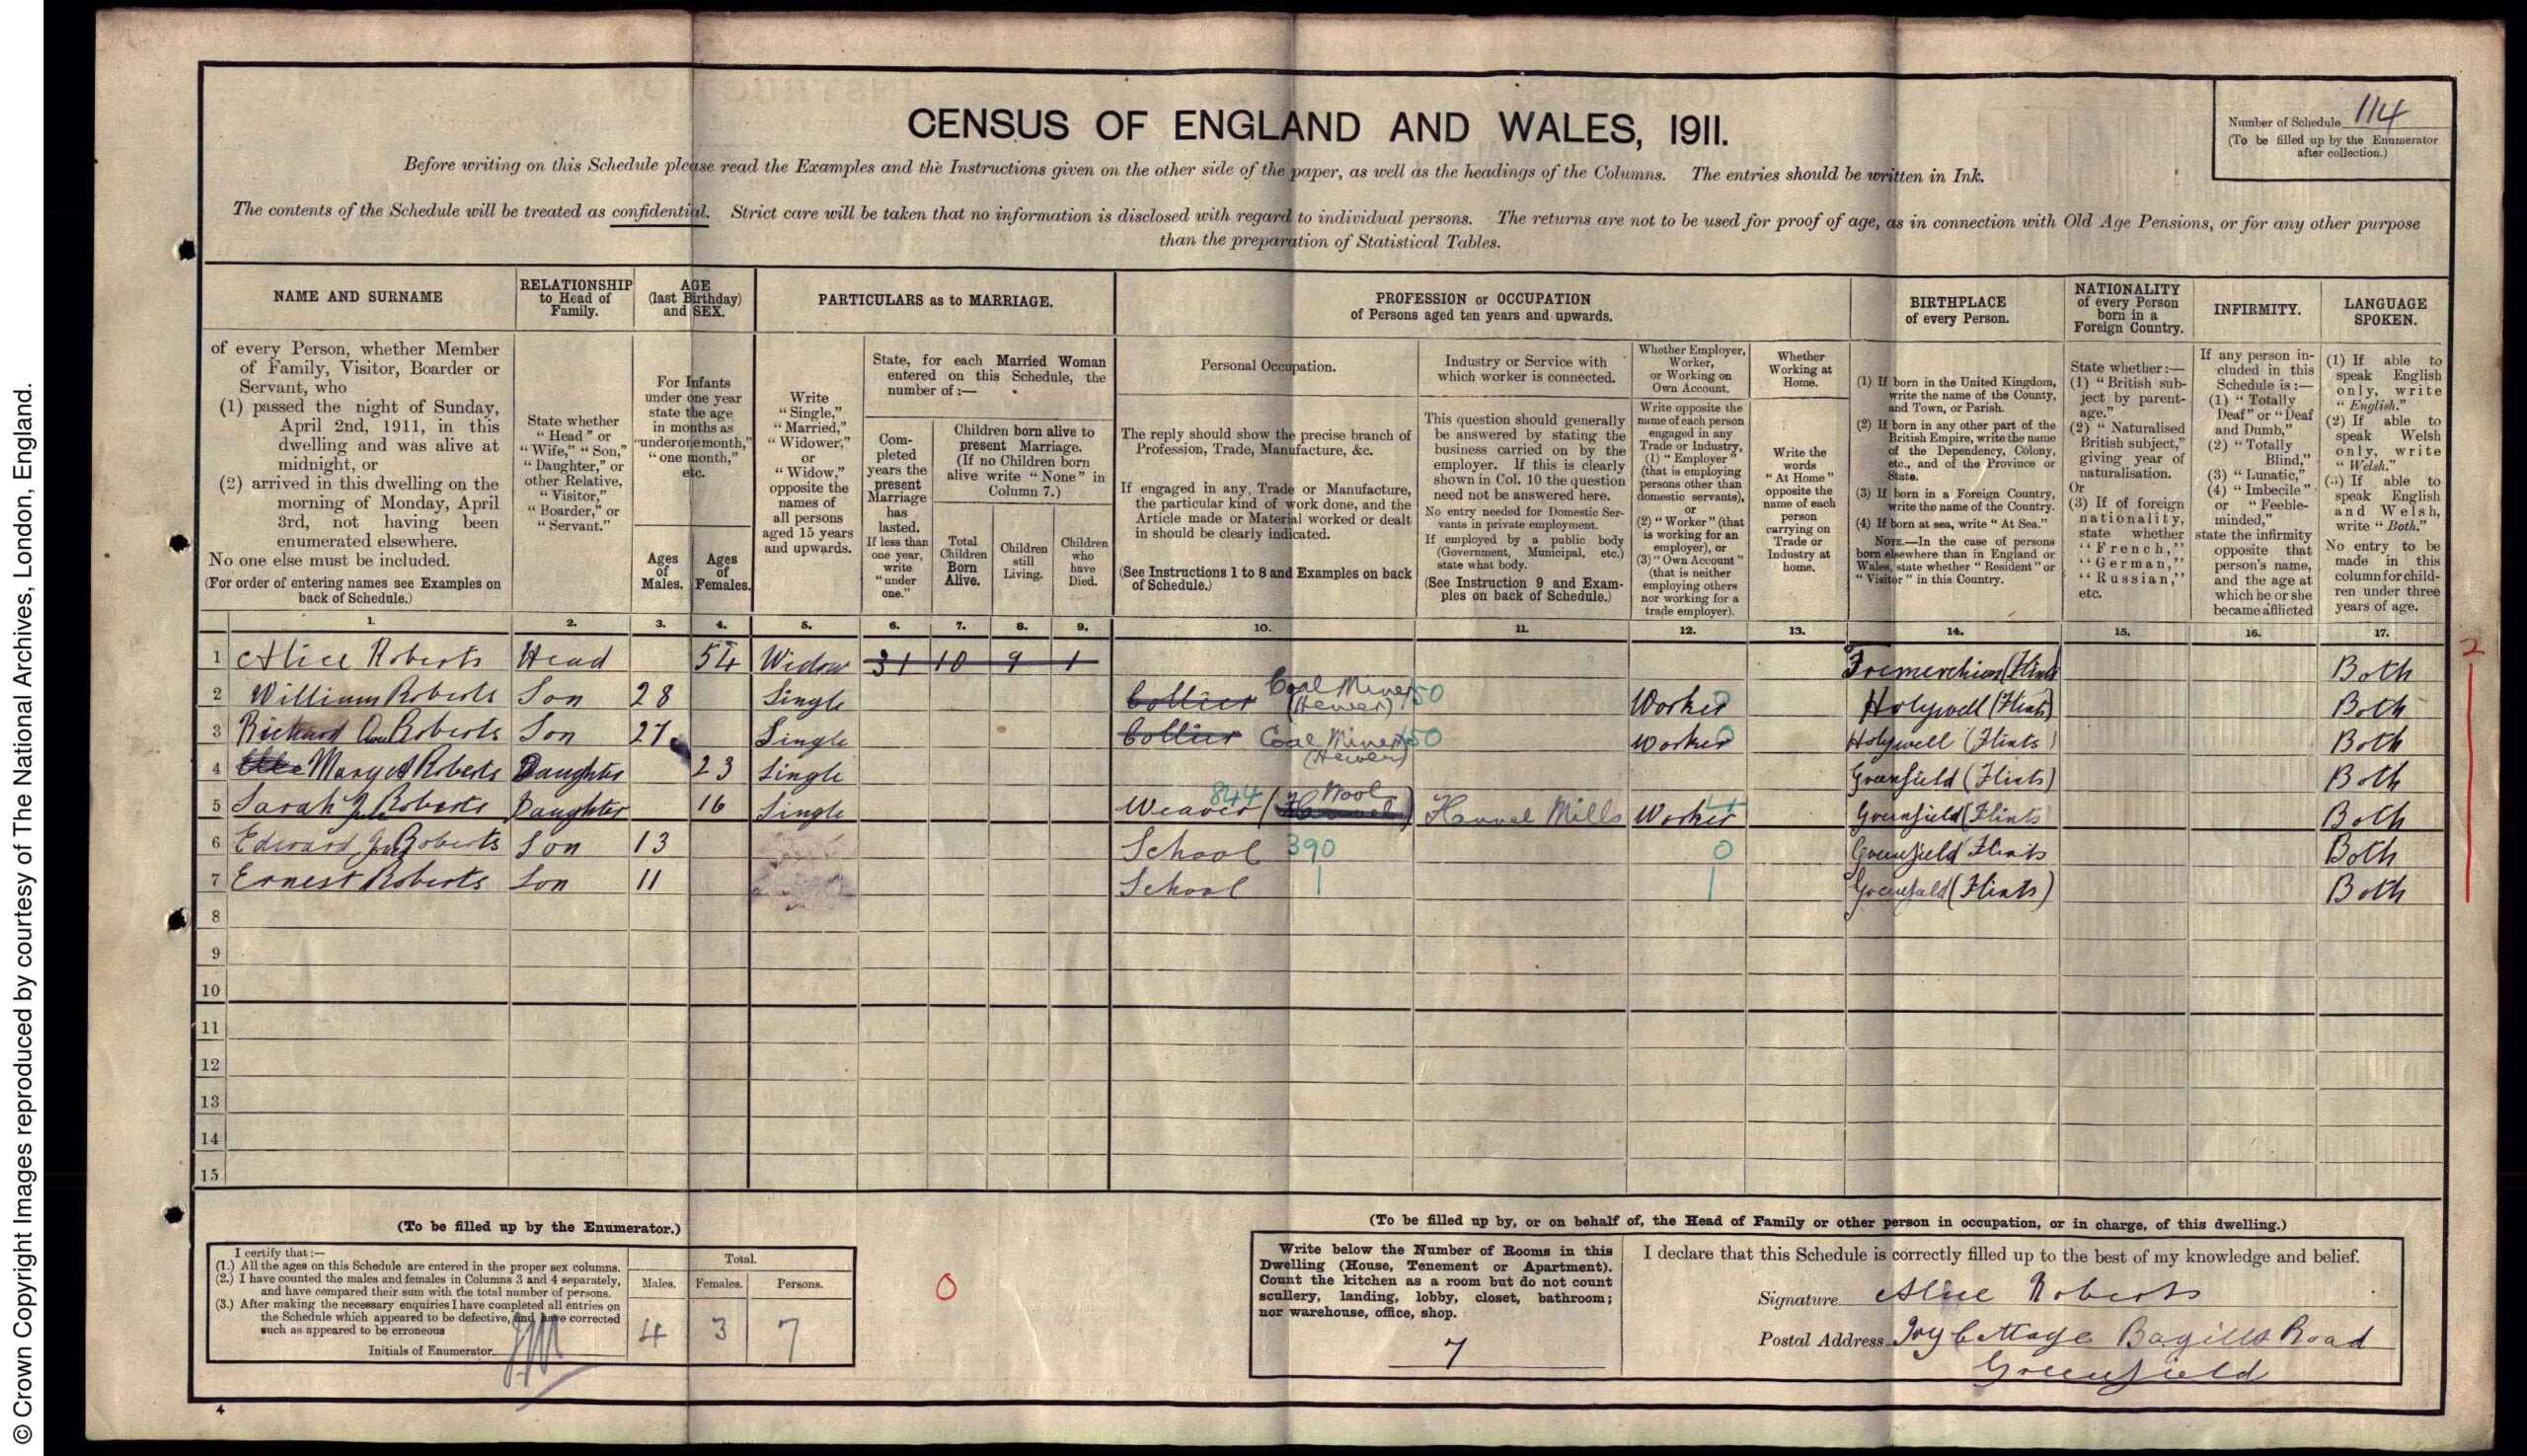 CENSUS OF ENGLAND AND WALES, 1911.
Number of Schedule 114
(To be filled up by the Enumerator after collection.)
Before writing on this Schedule please read the Examples and the Instructions given on the other side of the paper, as well as the headings of the Columns. The entries should be written in Ink.
The contents of the Schedule will be treated as confidential. Strict care will be taken that no information is disclosed with regard to individual persons. The returns are not to be used for proof of age, as in connection with Old Age Pensions, or for any other purpose
than the preparation of Statistical Tables.
NAME AND SURNAME
of every Person, whether Member
of Family, Visitor, Boarder or
Servant, who
(1) passed the night of Sunday,
April 2nd, 1911, in this
dwelling and was alive at
midnight, or
(2) arrived in this dwelling on the
morning of Monday, April
3rd, not having been
enumerated elsewhere.
No one else must be included.
(For order of entering names see Examples on
back of Schedule.)
RELATIONSHIP
to Head of
Family.
State whether
"Head" or
"Wife," "Son,"
"Daughter," or
other Relative,
"Visitor,"
"Boarder," or
"Servant."
AGE
(last Birthday)
and SEX.
For Infants
under one year
state the age
in months as
"under one month,"
"one month,"
etc.
Ages
of
Males.
Ages
of
Females.
PARTICULARS as to MARRIAGE.
Write
"Single,"
"Married,"
"Widower,"
or
"Widow,"
opposite the
names of
all persons
aged 15 years
and upwards.
State, for each Married Woman
entered on this Schedule, the
number of:—
Com-
pleted
years the
present
Marriage
has
lasted.
If less than
one year,
write
"under
one."
Children born alive to
present Marriage.
(If no Children born
alive write "None" in
Column 7.)
Total
Children
Born
Alive.
Children
still
Living.
Children
who
have
Died.
PROFESSION or OCCUPATION
of Persons aged ten years and upwards.
Personal Occupation.
The reply should show the precise branch of
Profession, Trade, Manufacture, &c.
If engaged in any Trade or Manufacture,
the particular kind of work done, and the
Article made or Material worked or dealt
in should be clearly indicated.
(See Instructions 1 to 8 and Examples on back
of Schedule.)
Industry or Service with
which worker is connected.
This question should generally
be answered by stating the
business carried on by the
employer. If this is clearly
shown in Col. 10 the question
need not be answered here.
No entry needed for Domestic Ser-
vants in private employment.
If employed by a public body
(Government, Municipal, etc.)
state what body.
(See Instruction 9 and Exam-
ples on back of Schedule.)
Whether Employer,
Worker,
or Working on
Own Account.
Write opposite the
name of each person
engaged in any
Trade or Industry,
(1) "Employer"
(that is employing
persons other than
domestic servants),
or
(2) "Worker" (that
is working for an
employer), or
(3) "Own Account"
(that is neither
employing others
nor working for a
trade employer).
Whether
Working at
Home.
Write the
words
"At Home"
opposite the
name of each
person
carrying on
Trade or
Industry at
home.
BIRTHPLACE
of every Person.
(1) If born in the United Kingdom,
write the name of the County,
and Town, or Parish.
(2) If born in any other part of the
British Empire, write the name
of the Dependency, Colony,
etc., and of the Province or
State.
(3) If born in a Foreign Country,
write the name of the Country.
(4) If born at sea, write "At Sea."
NOTE.—In the case of persons
born elsewhere than in England or
Wales, state whether "Resident" or
"Visitor" in this Country.
NATIONALITY
of every Person
born in a
Foreign Country.
State whether:—
(1) "British sub-
ject by parent-
age."
(2) "Naturalised
British subject,"
giving year of
naturalisation.
Or
(3) If of foreign
nationality,
state whether
"French,"
"German,"
"Russian,"
etc.
INFIRMITY.
If any person in-
cluded in this
Schedule is:—
(1) "Totally
Deaf" or "Deaf
and Dumb,"
(2) "Totally
Blind,"
(3) "Lunatic,"
(4) "Imbecile"
or "Feeble-
minded,"
state the infirmity
opposite that
person's name,
and the age at
which he or she
became afflicted
LANGUAGE
SPOKEN.
(1) If able to
speak English
only, write
"English."
(2) If able to
speak Welsh
only, write
"Welsh."
(3) If able to
speak English
and Welsh,
write "Both."
No entry to be
made in this
column for child-
ren under three
years of age.
1. 2. 3. 4. 5. 6. 7. 8. 9. 10. 11. 12. 13. 14. 15. 16. 17.
1 Alice Roberts Head 54 Widow 31 10 9 1 Tremerchion (Flints Both 2
2 William Roberts Son 28 Single Collier Coal Miner (Hewer) Worker Holywell (Flints) Both
3 Richard Roberts Son 27 Single Collier Coal Miner (Hewer) Worker Holywell (Flints) Both
4 Marget Roberts Daughter 23 Single Greenfield (Flints) Both
5 Sarah Roberts Daughter 16 Single Weaver (Wool) 844 Flannel Mills Worker Greenfield (Flints Both
6 Edward Roberts Son 13 School 390 0 Greenfield Flints Both
7 Ernest Roberts Son 11 School Greenfield (Flints) Both
8
9
10
11
12
13
14
15
(To be filled up by the Enumerator.)
I certify that:—
(1.) All the ages on this Schedule are entered in the proper sex columns.
(2.) I have counted the males and females in Columns 3 and 4 separately,
and have compared their sum with the total number of persons.
(3.) After making the necessary enquiries I have completed all entries on
the Schedule which appeared to be defective, and have corrected
such as appeared to be erroneous
Initials of Enumerator
Total.
Males. Females. Persons.
4 3 7
0
(To be filled up by, or on behalf of, the Head of Family or other person in occupation, or in charge, of this dwelling.)
Write below the Number of Rooms in this
Dwelling (House, Tenement or Apartment).
Count the kitchen as a room but do not count
scullery, landing, lobby, closet, bathroom;
nor warehouse, office, shop.
7
I declare that this Schedule is correctly filled up to the best of my knowledge and belief.
Signature Alice Roberts
Postal Address Ivy Cottage Bagillt Road
Greenfield
4
© Crown Copyright Images reproduced by courtesy of The National Archives, London, England.